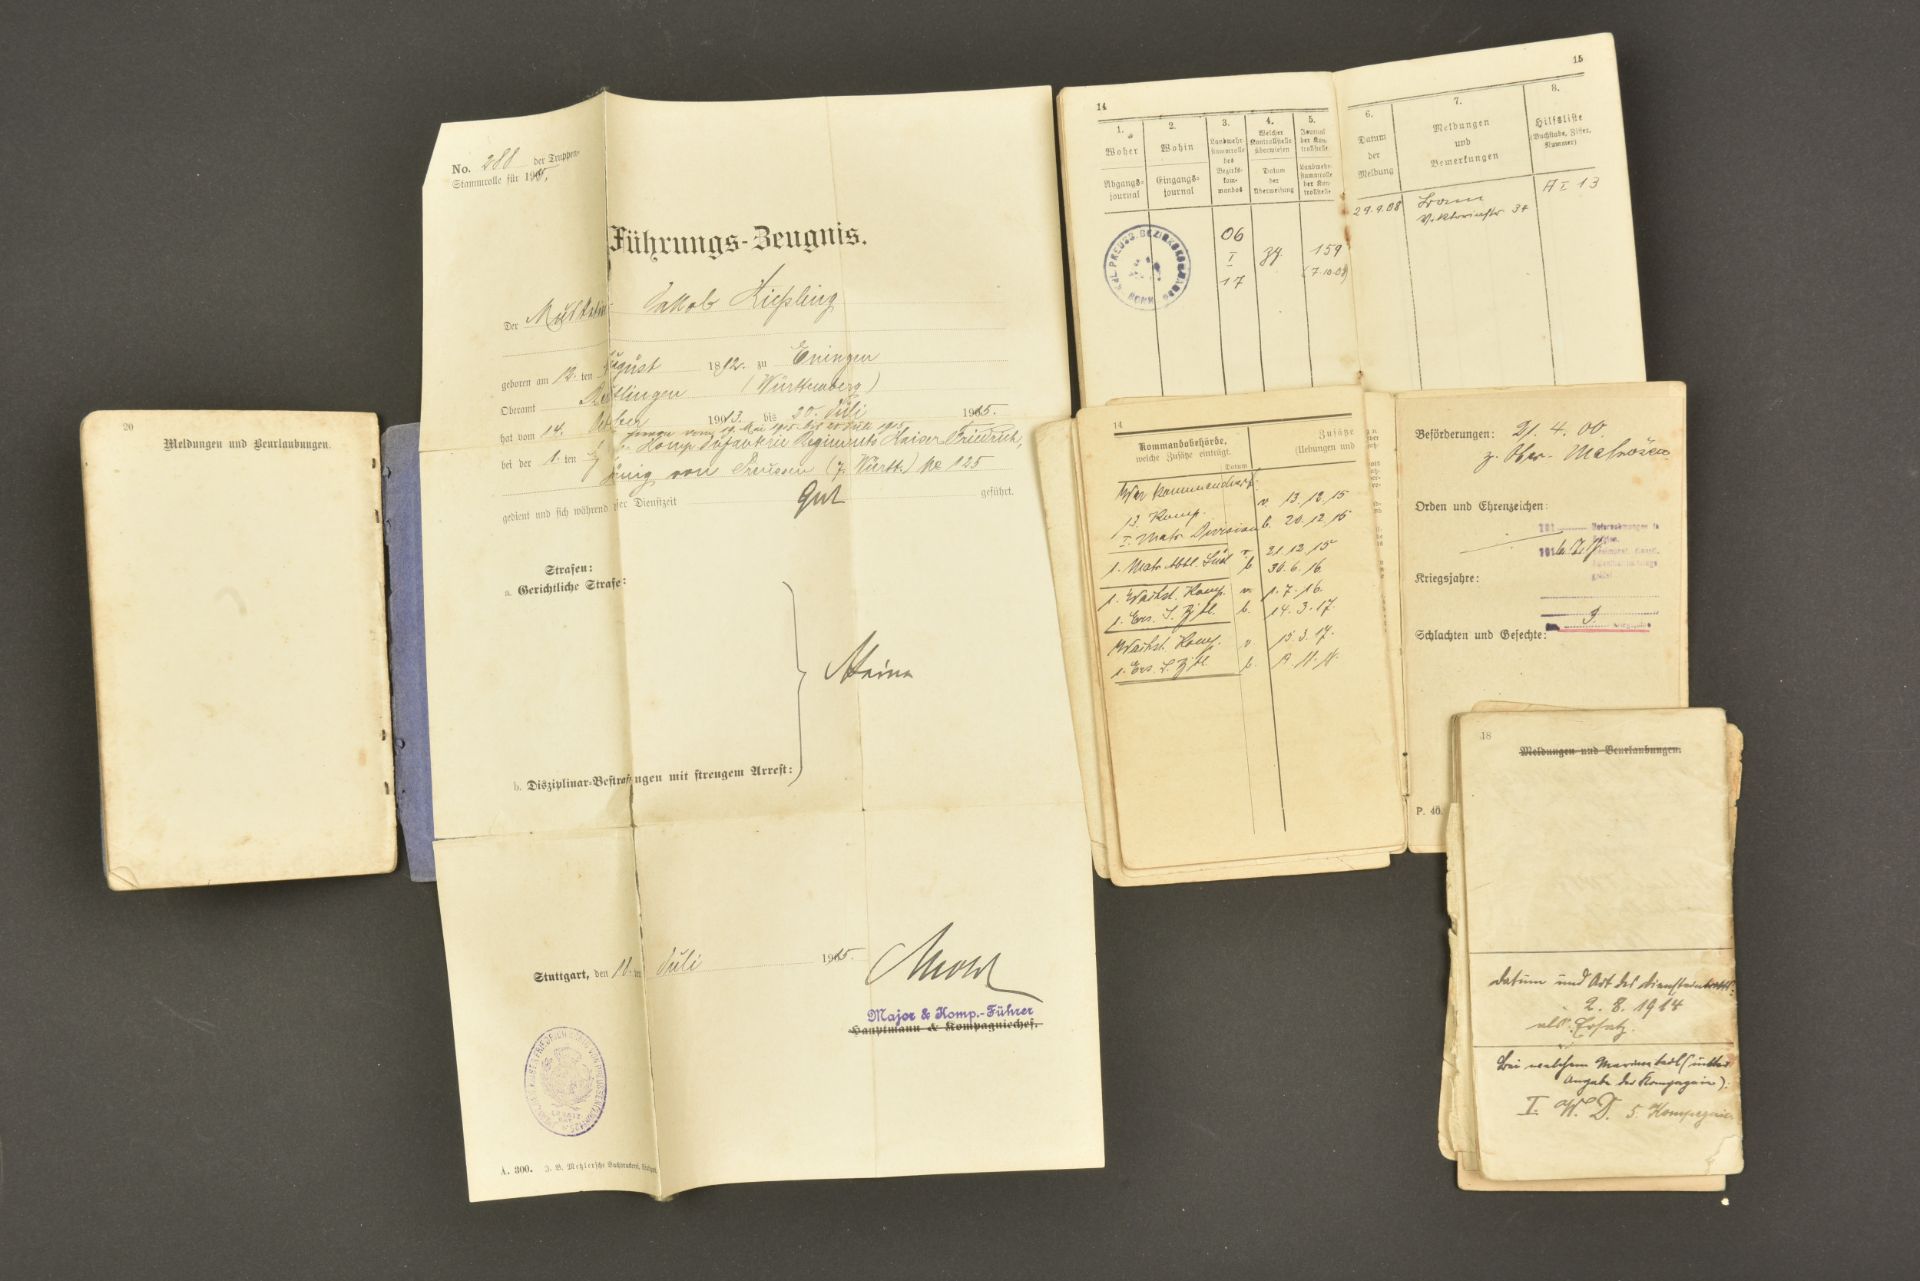 20
Meldungen und Beurlaubungen.
No. 288 der Truppen-
Stammrolle für 19
Führungs-Zeugnis.
Der Musketier Jakob Kießling
geboren am 12. ten August 1892. zu Eningen
Oberamt Reutlingen (Württemberg)
hat vom 14. Oktober 1913. bis 20. Juli 1915.
vom 19. Mai 1915 bis 20 Juli 1915
bei der 1. ten Komp. Infanterie Regiments Kaiser Friedrich,
König von Preussen (7. Württ.) No 125
gedient und sich während der Dienstzeit Gut geführt.
Strafen:
a. Gerichtliche Strafe:
Keine
b. Disziplinar-Bestrafungen mit strengem Arrest:
Stuttgart, den 11. ten Juli 1915.
Major & Komp.-Führer
Hauptmann & Kompagniechef.
A. 300. J. B. Metzlersche Buchdruckerei, Stuttgart
14
1.
Woher
Abgangs-
journal
2.
Wohin
Eingangs-
journal
3.
Landwehr-
stammrolle
des
Bezirks-
kom-
mandos
4.
Welcher
Kontrollstelle
überwiesen
Datum
der
Überweisung
5.
Journal
der Kon-
trollstelle
Landwehr-
stammrolle
der Kon-
trollstelle
KGL. PREUSS. BEZIRKSKOMMANDO
BONN
06
I
17
159
(7.10.08)
15
6.
Datum
der
Meldung
7.
Meldungen
und
Bemerkungen
8.
Hilfsliste
(Buchstabe, Ziffer,
Nummer)
29.9.08
Viktoriastr. 37
A I 13
14
Kommandobehörde,
welche Zusätze einträgt.
Datum
Zusätze
(Uebungen und
13. Komp. v. 13.12.15
I. Matr. Division b. 20.12.15
1. Matr. Abtl. v. 21.12.15
b. 30.6.16
1. Komp. v. 1.7.16.
1. Ers. b. 14.3.17.
Komp. v 15.3.17.
1. Ers. b.
Beförderungen: 21.4.00.
z. Matrosen
Orden und Ehrenzeichen:
Kriegsjahre:
Schlachten und Gefechte:
P. 40.
18
Meldungen und Beurlaubungen.
Datum und Art des Diensteintritts:
2.8.1914
als Ersatz.
Bei welchem Marineteil (unter
Angabe der Kompagnie).
I. W. D. 5 Kompagnie